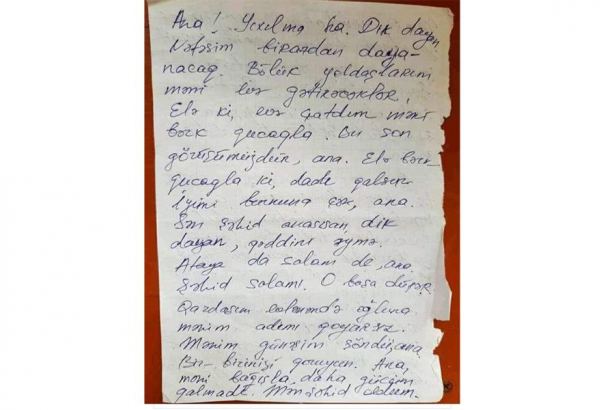 Ana! Yıxılma ha. Dik dayan.
Nəfəsim birazdan daya-
nacaq. Bölük yoldaşlarım
məni evə gətirəcəklər.
Elə ki, evə çatdım məni
bərk qucaqla. Bu son
görüşümüzdür, ana. Elə bərk
qucaqla ki,
iyimi çək, ana.
Sən şəhid anasısan, dik
dayan, qəddini əymə.
Ataya da salam de, ana.
Şəhid salamı. O başa düşər.
Qardaşım oğluna
mənim adımı qoyarsız.
Mənim günəşim söndü, ana.
Bir-birinizi qoruyun. Ana,
məni bağışla, daha gücüm
qalmadı. Mən şəhid oldum.